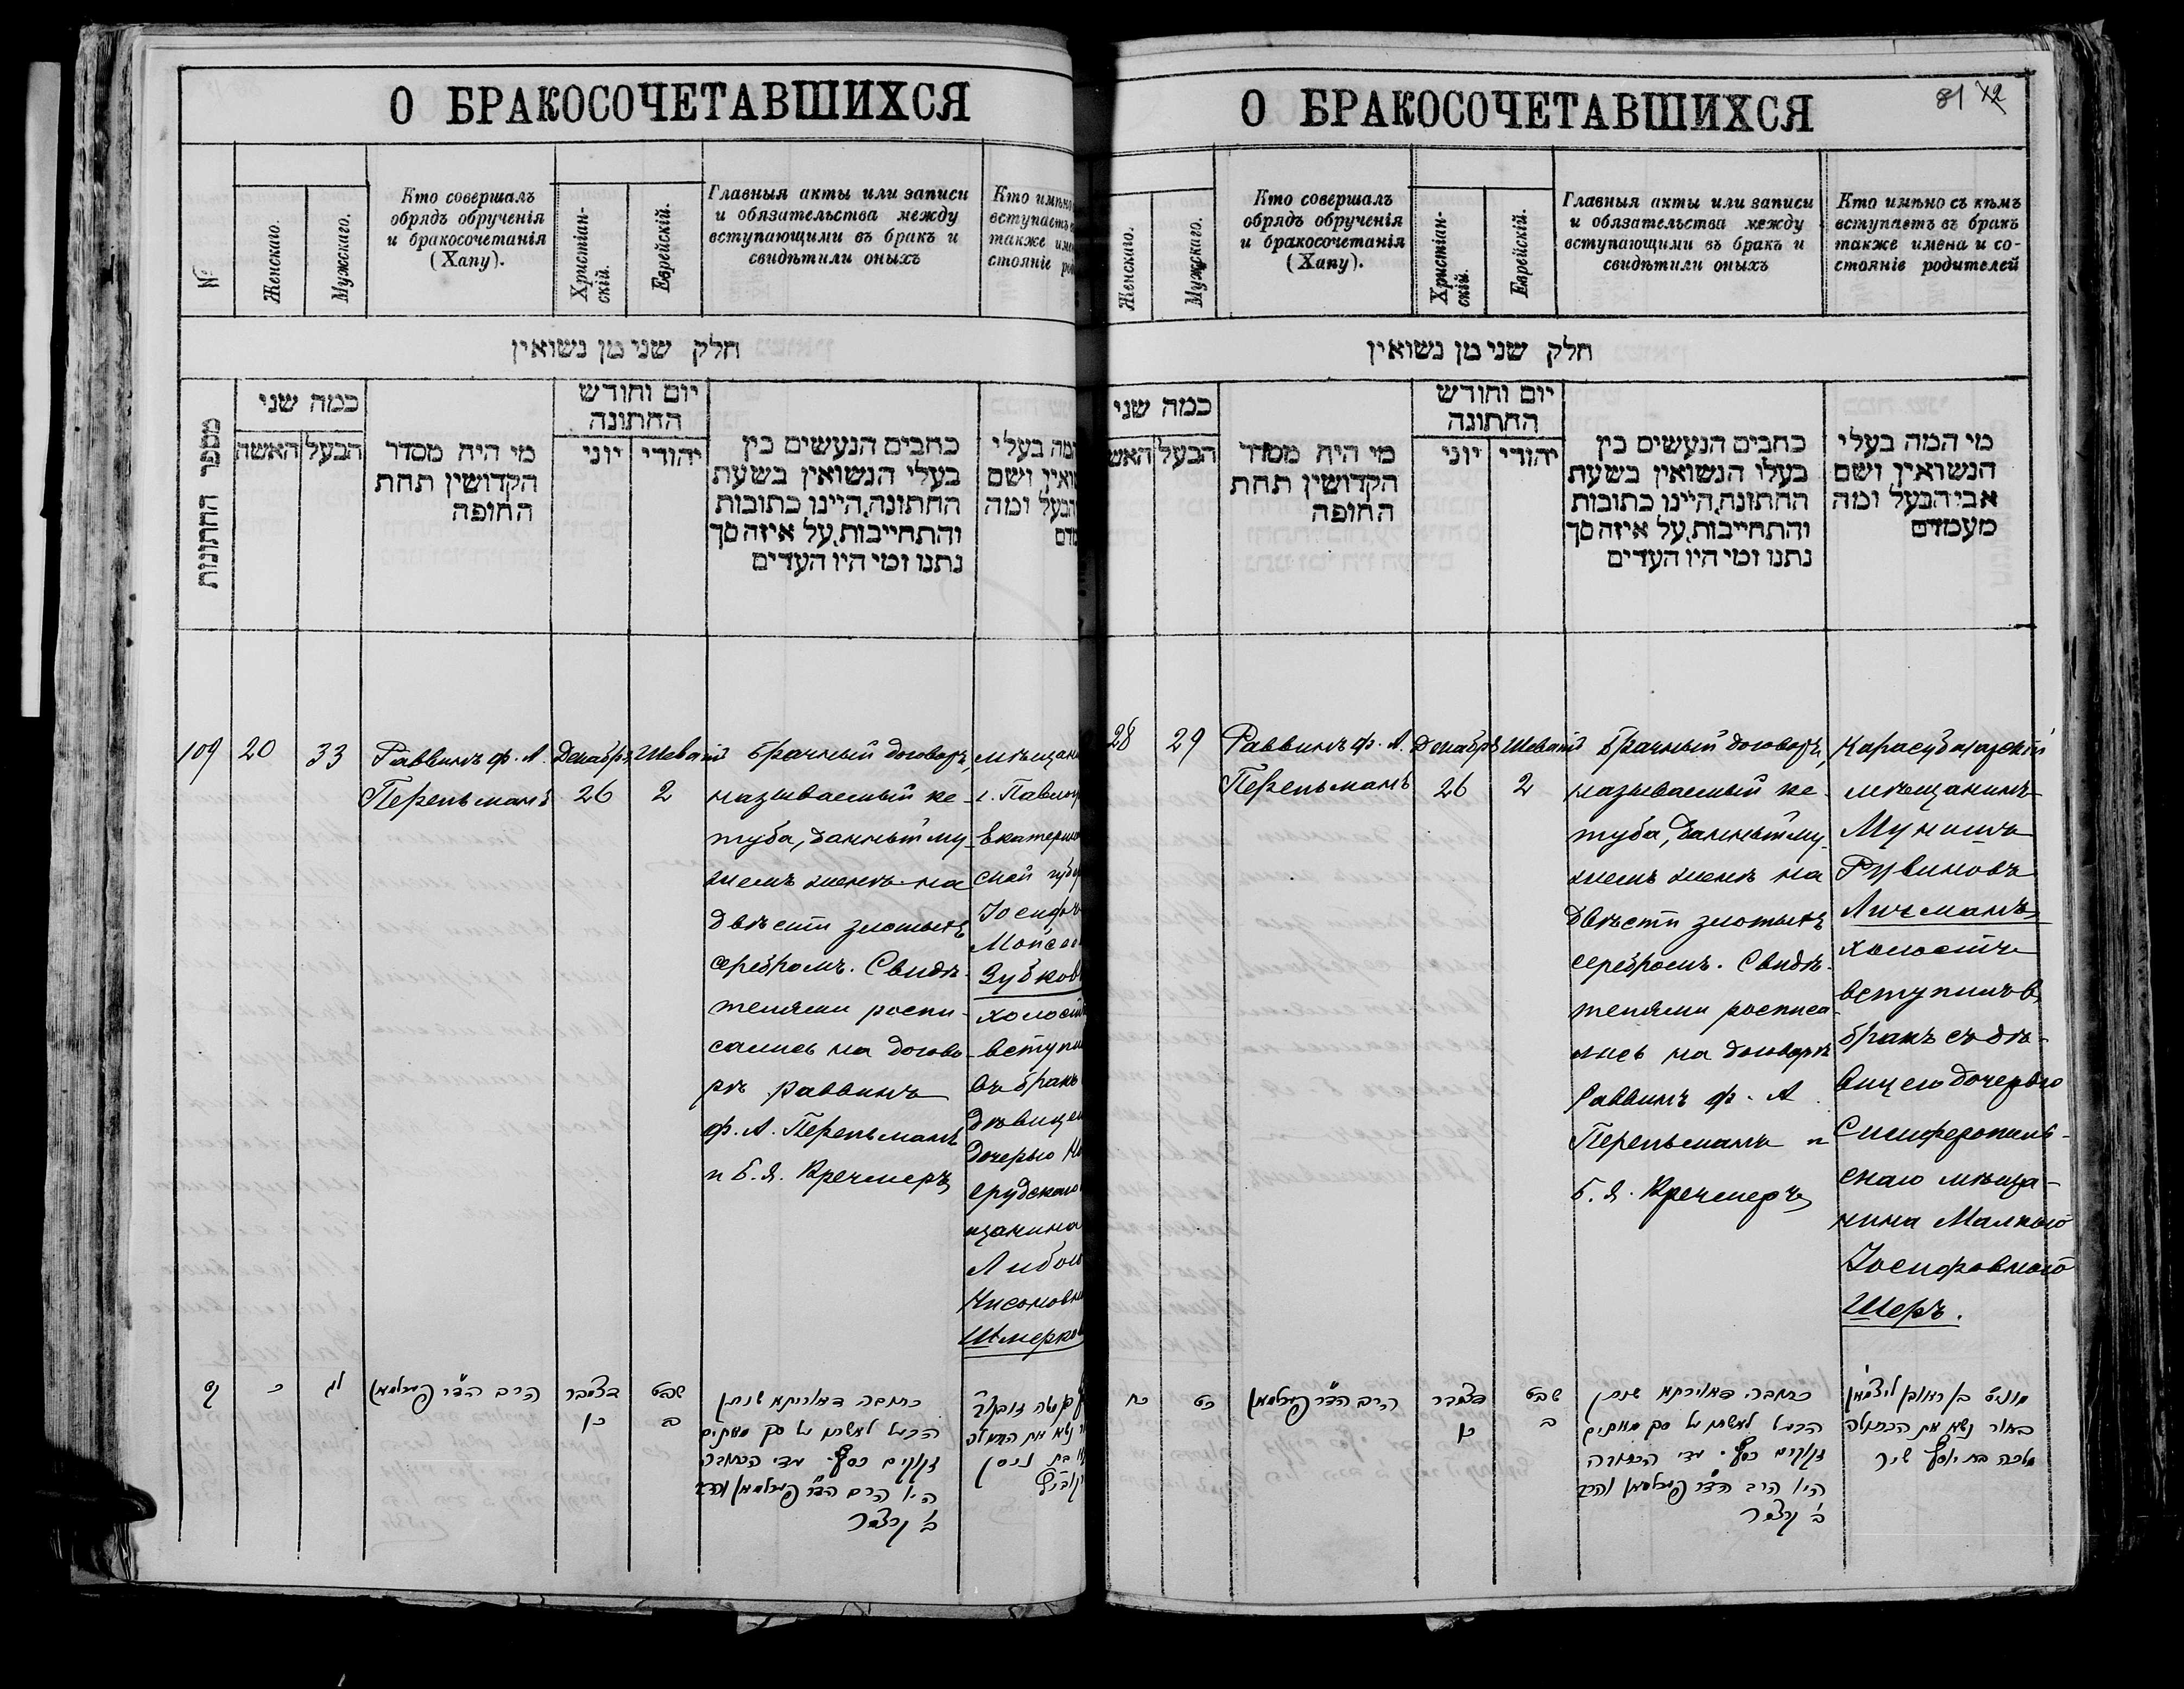 О БРАКОСОЧЕТАВШИХСЯ
№
Женскаго.
Мужскаго.
Кто совершалъ
обрядъ обрученія
и бракосочетанія
(Хапу).
Христіан-
скій.
Еврейскій.
Главныя акты или записи
и обязательства между
вступающими въ брак и
свидѣтили оныхъ
Кто имѣно
вступаетъ
также
стояніе
חלק שני מן נשואין
מספר החתונות
כמה שני
האשה
הבעל
מי היה מסדר
הקדושין תחת
החופה
יום וחודש
החתונה
יוני
יהודי
כתבים הנעשים בין
בעלי הנשואין בשעת
החתונה, היינו כתובות
והתחייבות, על איזה סך
נתנו ומי היו העדים
המה בעלי
ושם
הבעל ומה
109
20
33
Раввинъ Ф. А.
Перельманъ
Декабря
26
Шеватъ
2
Брачный договоръ,
называемый ке-
туба, данный му-
жемъ женѣ на
двѣсти злотыхъ
серебромъ. Свидѣ-
телями роспи-
сались на догово-
рѣ раввинъ
Ф. А. Перельманъ
и Б. Я. Кречмеръ
г. Павло
Екатерино
ской губер
Іосифъ
Мойсее
Зубков
холостъ
вступи
въ бракъ
дѣвицею
дочерью
щанина
Любою
Нисоновн
Шмерко
כ
לג
הרב הד״ר פערלמאן
דצמבר
כו
שבט
ב
כתובה דאורייתא שנתן
הבעל לאשתו על סך מאתים
זקוקים כסף. עדי הכתובה
היו הרב הד״ר פערלמאן והרב
ב׳ קרצמר
О БРАКОСОЧЕТАВШИХСЯ
81
Женскаго.
Мужскаго.
Кто совершалъ
обрядъ обрученія
и бракосочетанія
(Хапу).
Христіан-
скій.
Еврейскій.
Главныя акты или записи
и обязательства между
вступающими въ брак и
свидѣтили оныхъ
Кто имѣно съ кѣмъ
вступаетъ въ бракъ
также имена и со-
стояніе родителей
חלק שני מן נשואין
כמה שני
האש
הבעל
מי היה מסדר
הקדושין תחת
החופה
יום וחודש
החתונה
יוני
יהודי
כתבים הנעשים בין
בעלי הנשואין בשעת
החתונה, היינו כתובות
והתחייבות, על איזה סך
נתנו ומי היו העדים
מי המה בעלי
הנשואין ושם
אבי הבעל ומה
מעמדם
28
29
Раввинъ Ф. А.
Перельманъ
Декабря
26
Шеватъ
2
Брачный договоръ,
называемый ке-
туба, данный му-
жемъ женѣ на
двѣсти злотыхъ
серебромъ. Свидѣ-
телями росписа-
лись на договорѣ
Раввинъ Ф. А.
Перельманъ и
Б. Я. Кречмеръ
Карасубазарскій
мѣщанинъ
Мунишъ
Рувиновъ
Личманъ,
холостъ
вступилъ въ
бракъ съ дѣ-
вицею дочерью
Симферополь-
скаго мѣща-
нина Малкою
Іосифовною
Шеръ.
כח
כט
הרב הד״ר פערלמאן
דצמבר
כו
שבט
ב
כתובה דאורייתא שנתן
הבעל לאשתו על סך מאתים
זקוקים כסף. עדי הכתובה
היו הרב הד״ר פערלמאן והרב
ב׳ קרצמר
מוניש בן ראובן ליצמאן
בחור נשא את הבתולה
מלכה בת יוסף שיר